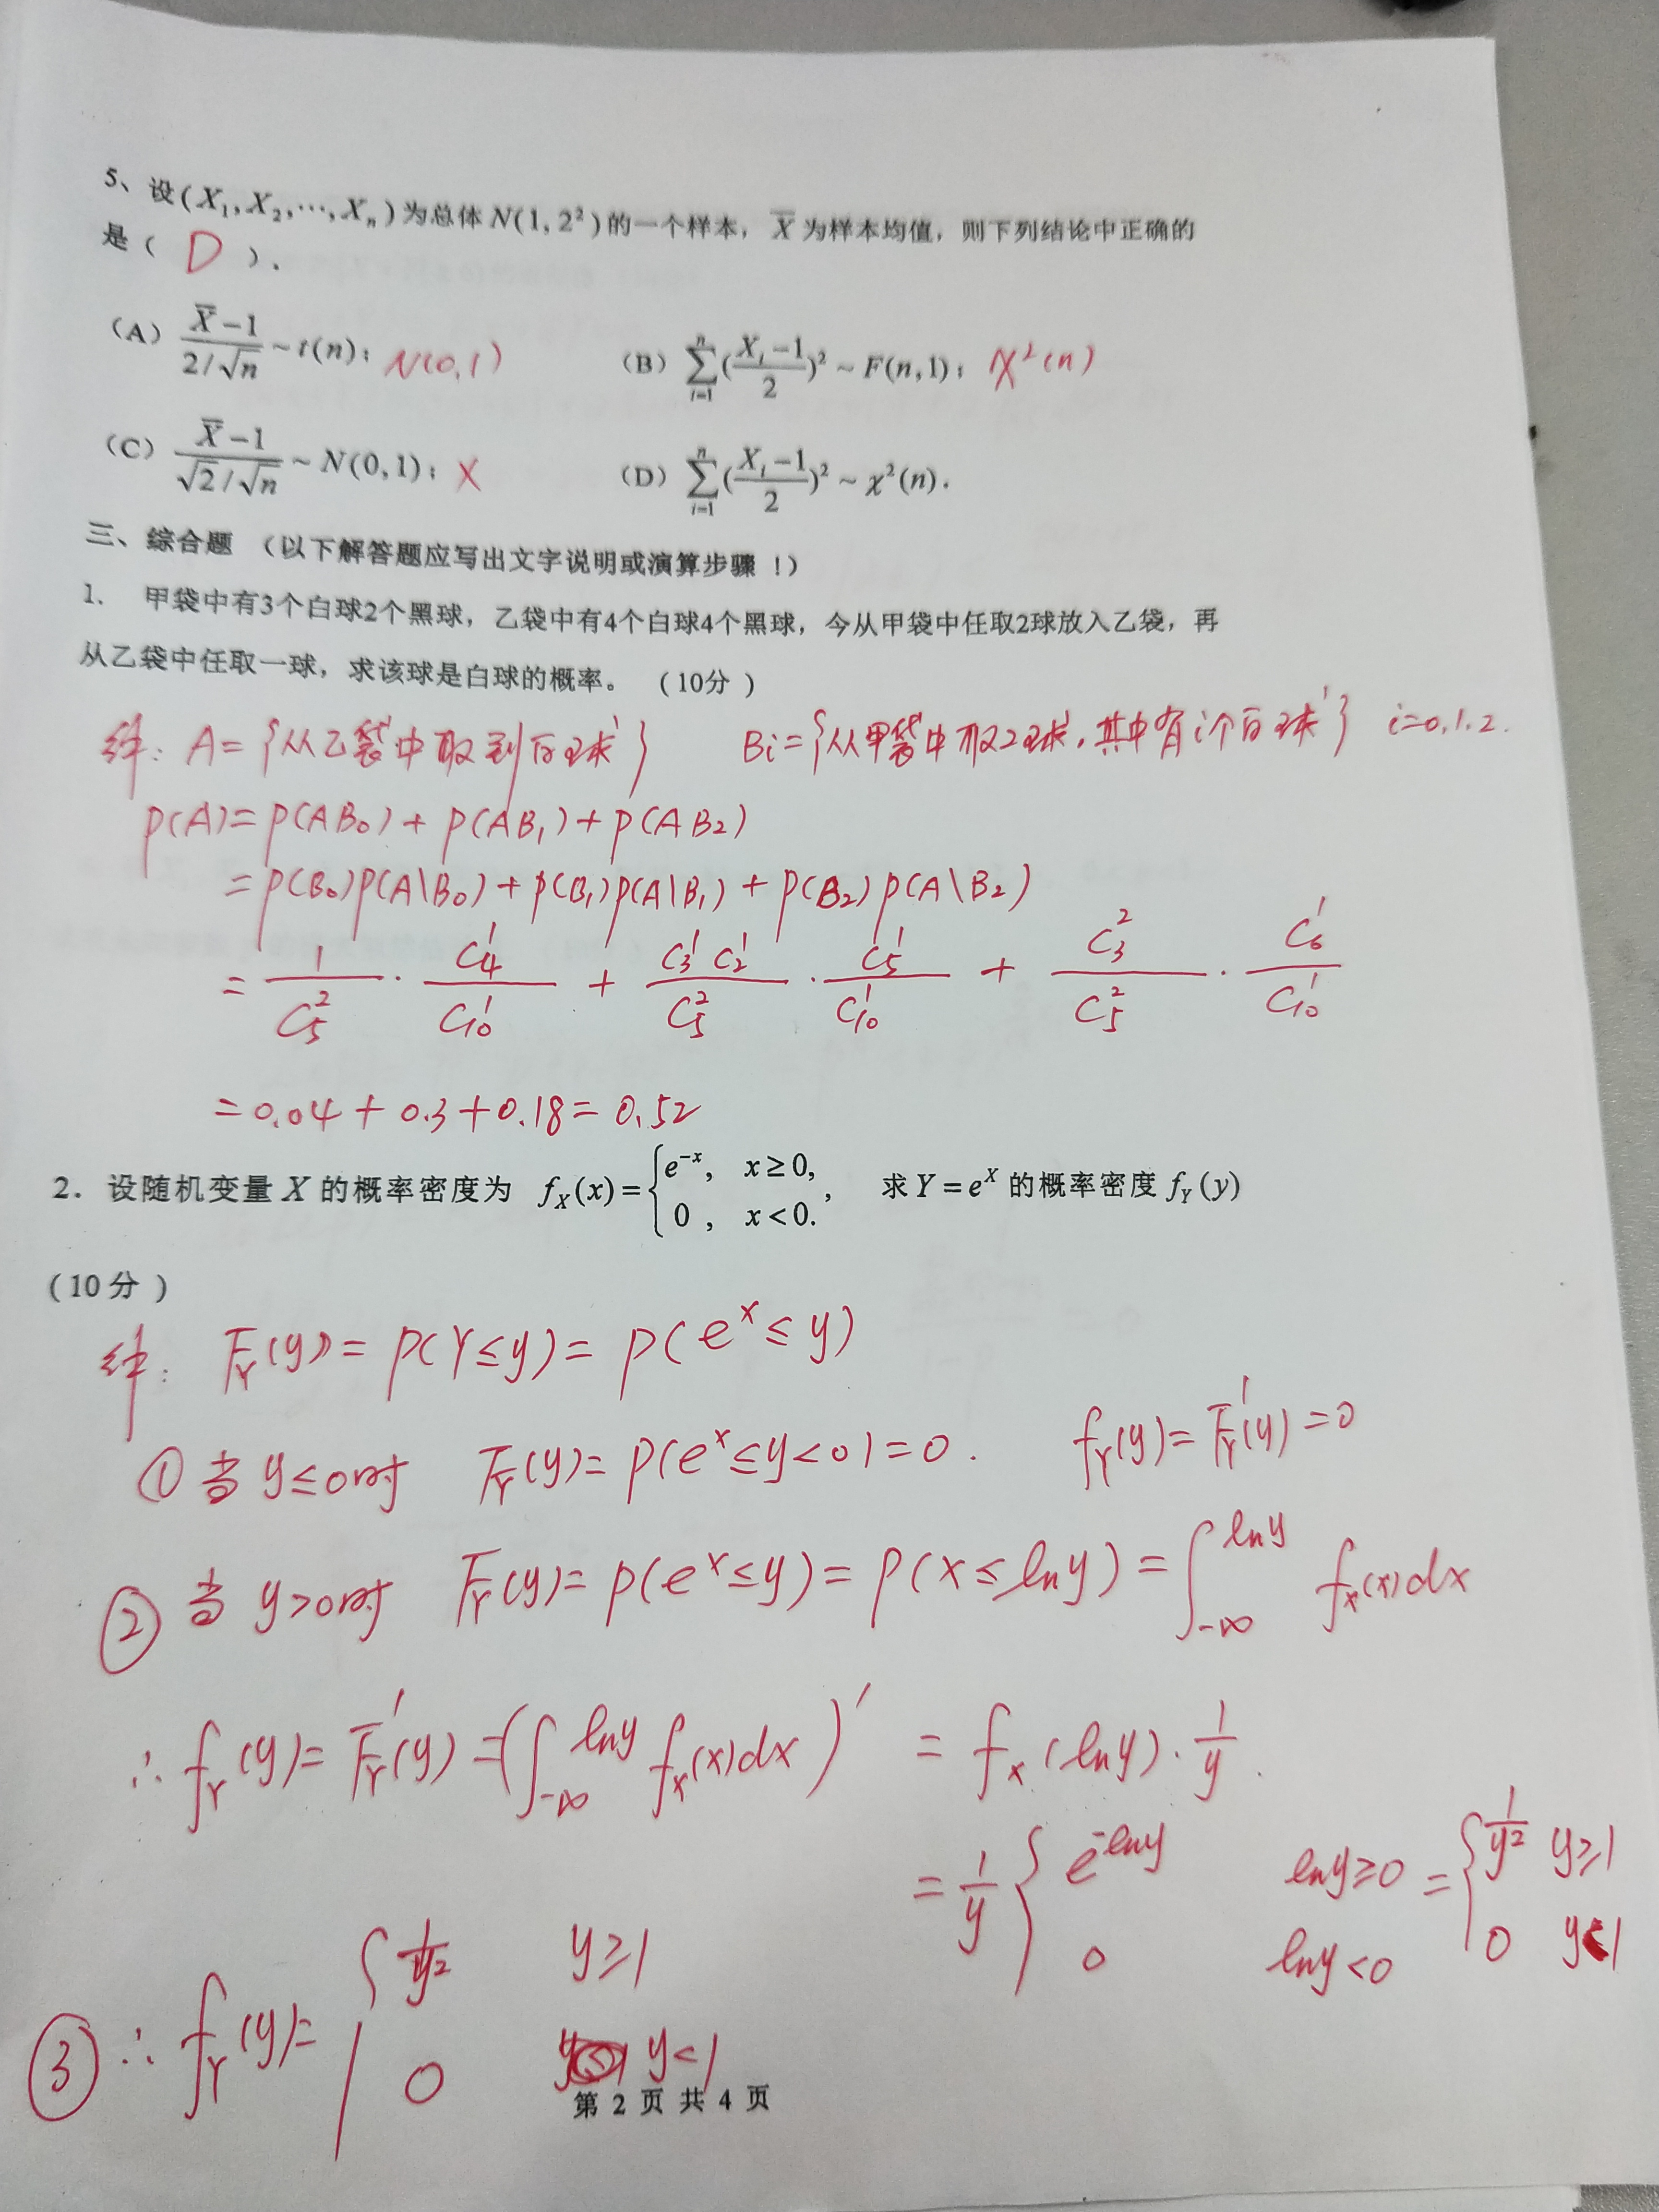 5、设(X₁,X₂,⋯,Xₙ)为总体N(1,2²)的一个样本，X̄为样本均值，则下列结论中正确的
是（ D ）.
（A）(X̄−1)/(2/√n) ~ t(n)； N(0,1) （B）∑ᵢ₌₁ⁿ((Xᵢ−1)/2)² ~ F(n,1)； χ²(n)
（C）(X̄−1)/(√2/√n) ~ N(0,1)； × （D）∑ᵢ₌₁ⁿ((Xᵢ−1)/2)² ~ χ²(n).
三、综合题 （以下解答题应写出文字说明或演算步骤 ！）
1. 甲袋中有3个白球2个黑球，乙袋中有4个白球4个黑球，今从甲袋中任取2球放入乙袋，再
从乙袋中任取一球，求该球是白球的概率。 （10分 ）
解: A={从乙袋中取到白球} Bi={从甲袋中取2球,其中有i个白球} i=0.1.2.
P(A)=P(AB₀)+P(AB₁)+P(AB₂)
=P(B₀)P(A\B₀)+P(B₁)P(A|B₁)+P(B₂)P(A\B₂)
=1/C₅²·C₄¹/C₁₀¹+C₃¹C₂¹/C₅²·C₅¹/C₁₀¹+C₃²/C₅²·C₆¹/C₁₀¹
=0.04+0.3+0.18=0.52
2. 设随机变量 X 的概率密度为 f_X(x)={e⁻ˣ, x≥0, 0, x<0. , 求Y=e^X 的概率密度 f_Y(y)
（10 分 ）
解: F_Y(y)=P(Y≤y)=P(e^X≤y)
① 当 y≤0时 F_Y(y)=P(e^X≤y<0)=0. f_Y(y)=F_Y'(y)=0
② 当 y>0时 F_Y(y)=P(e^X≤y)=P(X≤lny)=∫_{-∞}^{lny} f_X(x)dx
∴ f_Y(y)=F_Y'(y)=(∫_{-∞}^{lny} f_X(x)dx)'=f_X(lny)·1/y.
=1/y{e^{-lny} lny≥0 0 lny<0 ={1/y² y≥1 0 y<1
③ ∴ f_Y(y)={1/y² y≥1 0 y<1
第 2 页 共 4 页